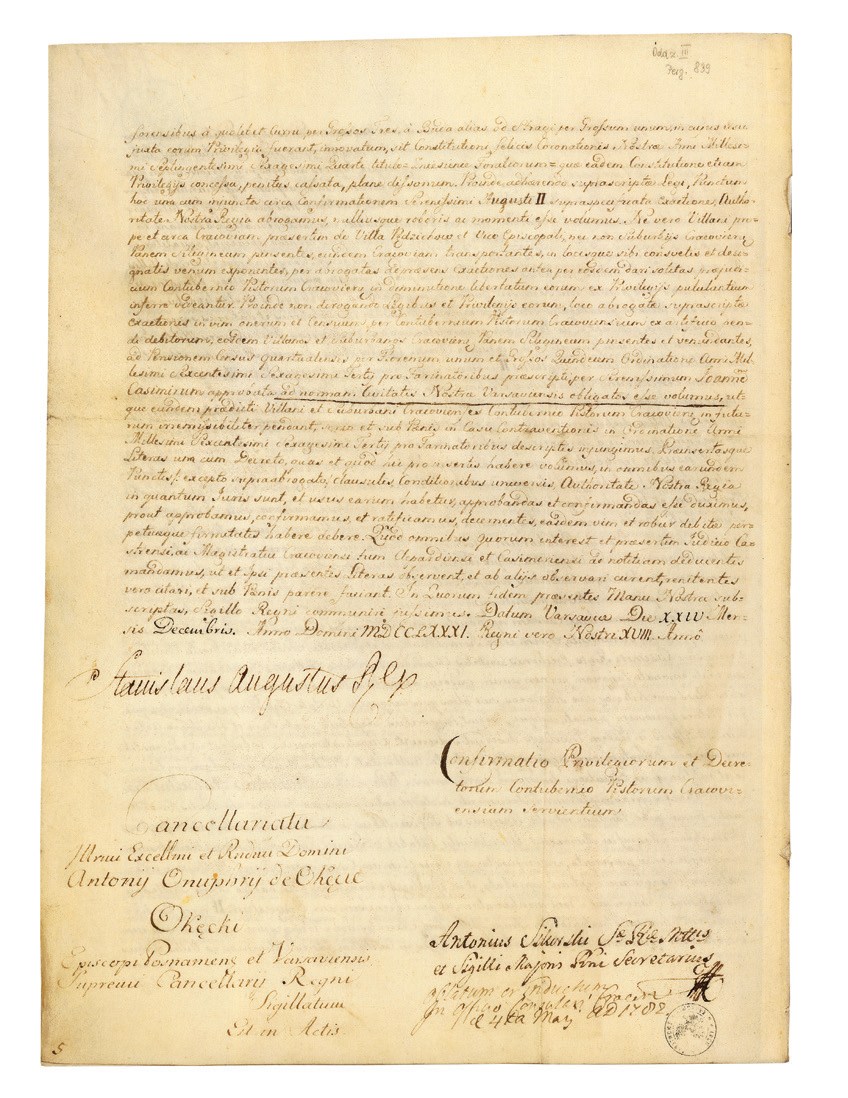 Perg. 839
forensibus à quolibet Curru per Grossos Tres, à Baca alias de Stragi per Grossum unum, in quantum
juxta eorum Privilegia fuerant, innovatum, sit Constitutione, felicis Coronationis Nostræ Anni Millesi-
mi Septingentesimi Sexagesimi Quarti titulo quæ eadem Constitutione etiam
Privilegijs concessa, penitus cassata, plane dissonum. Proinde adhærendo suprascriptæ Legi, Punctum
hoc una cum injuncta circa Confirmationem Serenissimi Augusti II supraspecificata Exactione, Autho-
ritate Nostra Regia abrogamus, nulliusque roboris ac momenti esse volumus. Ne vero Villani pro-
pe et circa Cracoviam præsertim de Villa et Vico Episcopali, nec non Suburbijs Cracovien:
Panem Siligineam pinsentes, nincem Cracoviam transportantes, in locisque sibi consuetis et desig-
natis venum exponentes, per abrogatas depræsens exactiones antea per eosdem dari solitas præjudi-
cium Contubernio Pistorum Cracovien: in diminutione libertatum eorum ex Privilegijs pullulantium
inferre videantur. Proinde non derogando Legibus et Privilegijs eorum, loco abrogatæ suprascriptæ
exactionis in vim onerum et Censuum, per Contubernium Pistorum Cracoviensium ex artificio pen-
di debitorum, eosdem Villanos et Suburbanos Cracovien: Panem Siligineum pinsentes et vendentes,
ad Pensionem Census quartualensis per Florenum unum et Grossos Quindecim Ordinatione Anni Mil-
lesimi Sexcentesimi Sexagesimi Tertij pro Farinatoribus præscripti, per Serenissimum Joannem
Casimirum approbata ad normam Civitatis Nostræ Varsaviensis obligatos esse volumus, ut-
que eundem prædicti Villani et Suburbani Cracovienses Contubernio Pistorum Cracovien: in futu-
rum irremissibiliter pendant, serio et sub Pœnis in Casu Contraventionis in Ordinatione Anni
Millesimi Sexcentesimi Sexagesimi Tertij pro Farinatoribus descriptis injungimus. Præinsertasque
Literas una cum Decreto, quas et quod hic pro inserto habere volumus, in omnibus earundem
Punctis /: excepto supra abrogato :/ clausulis, Conditionibus universis, Authoritate Nostra Regia
in quantum Juris sunt, et usus earum habetur, approbandas et confirmandas esse duximus,
prout approbamus, confirmamus, et ratificamus, decernentes, easdem vim et robur debitæ per-
petuæque firmitatis habere debere. Quod omnibus quorum interest et præsertim Judicio Ca-
strensi, ac Magistratui Cracoviensi tum Clepardiensi et Casimiriensi ad notitiam deducentes
mandamus, ut et Ipsi præsentes Literas observent, et ab alijs observari curent, renitentes
vero citari, et sub Pœnis parere faciant. In Quorum fidem præsentes Manu Nostra sub-
scriptas, Sigillo Regni communiri jussimus. Datum Varsaviæ Die XXIV Men-
sis Decembris. Anno Domini MDCCLXXXI. Regni vero Nostri XVIII. Annô
Stanislaus Augustus Rex
Confirmatio Privilegiorum et Decre-
torum Contubernio Pistorum Cracovi-
ensium servientium
Cancellariatu
Illmi Excellmi et Rndmi Domini
Antonij Onuphrij de Okęcie
Okęcki
Episcopi Posnaniensis et Varsaviensis
Supremi Cancellarij Regni
Sigillatum
Est in Actis
Antonius Sikorski
et Sigilli Majoris Rni Secretarius
oblatum et inductum
in Officio Consulari
d 4ta Maij AD 1782
5